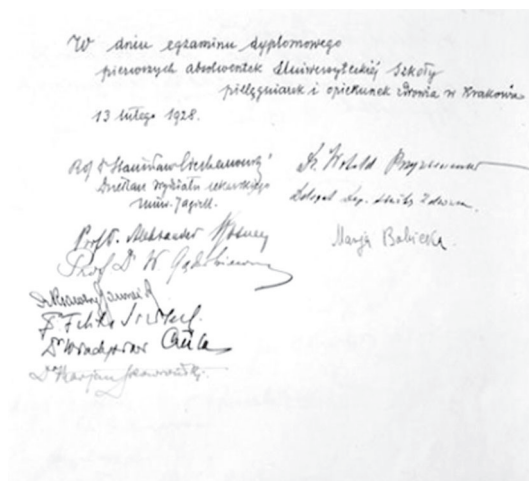 W dniu egzaminu dyplomowego
pierwszych absolwentek Uniwersyteckiéj Szkoły
pielęgniarek i opiekunek zdrowia w Krakowie
13 lutego 1928.
Prof Dr Stanisław Ciechanowski
Dziekan Wydziału lekarskiego
Uniw. Jagiell.
Dr. Witold
Delegat Dep. służby Zdrowia.
Prof Dr. Aleksander
Marja Babicka.
Prof Dr W.
Dr
Dr Feliks
Dr Władysław
Dr Marjan